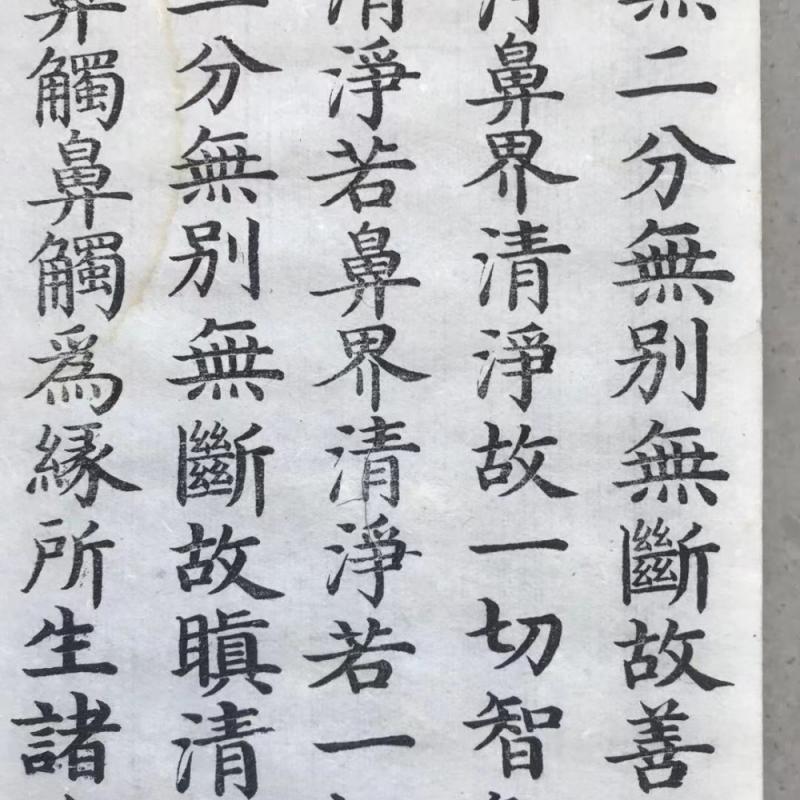 無二分無別無斷故善
淨鼻界清淨故一切智
清淨若鼻界清淨若一
二分無別無斷故瞋清
鼻觸鼻觸爲緣所生諸